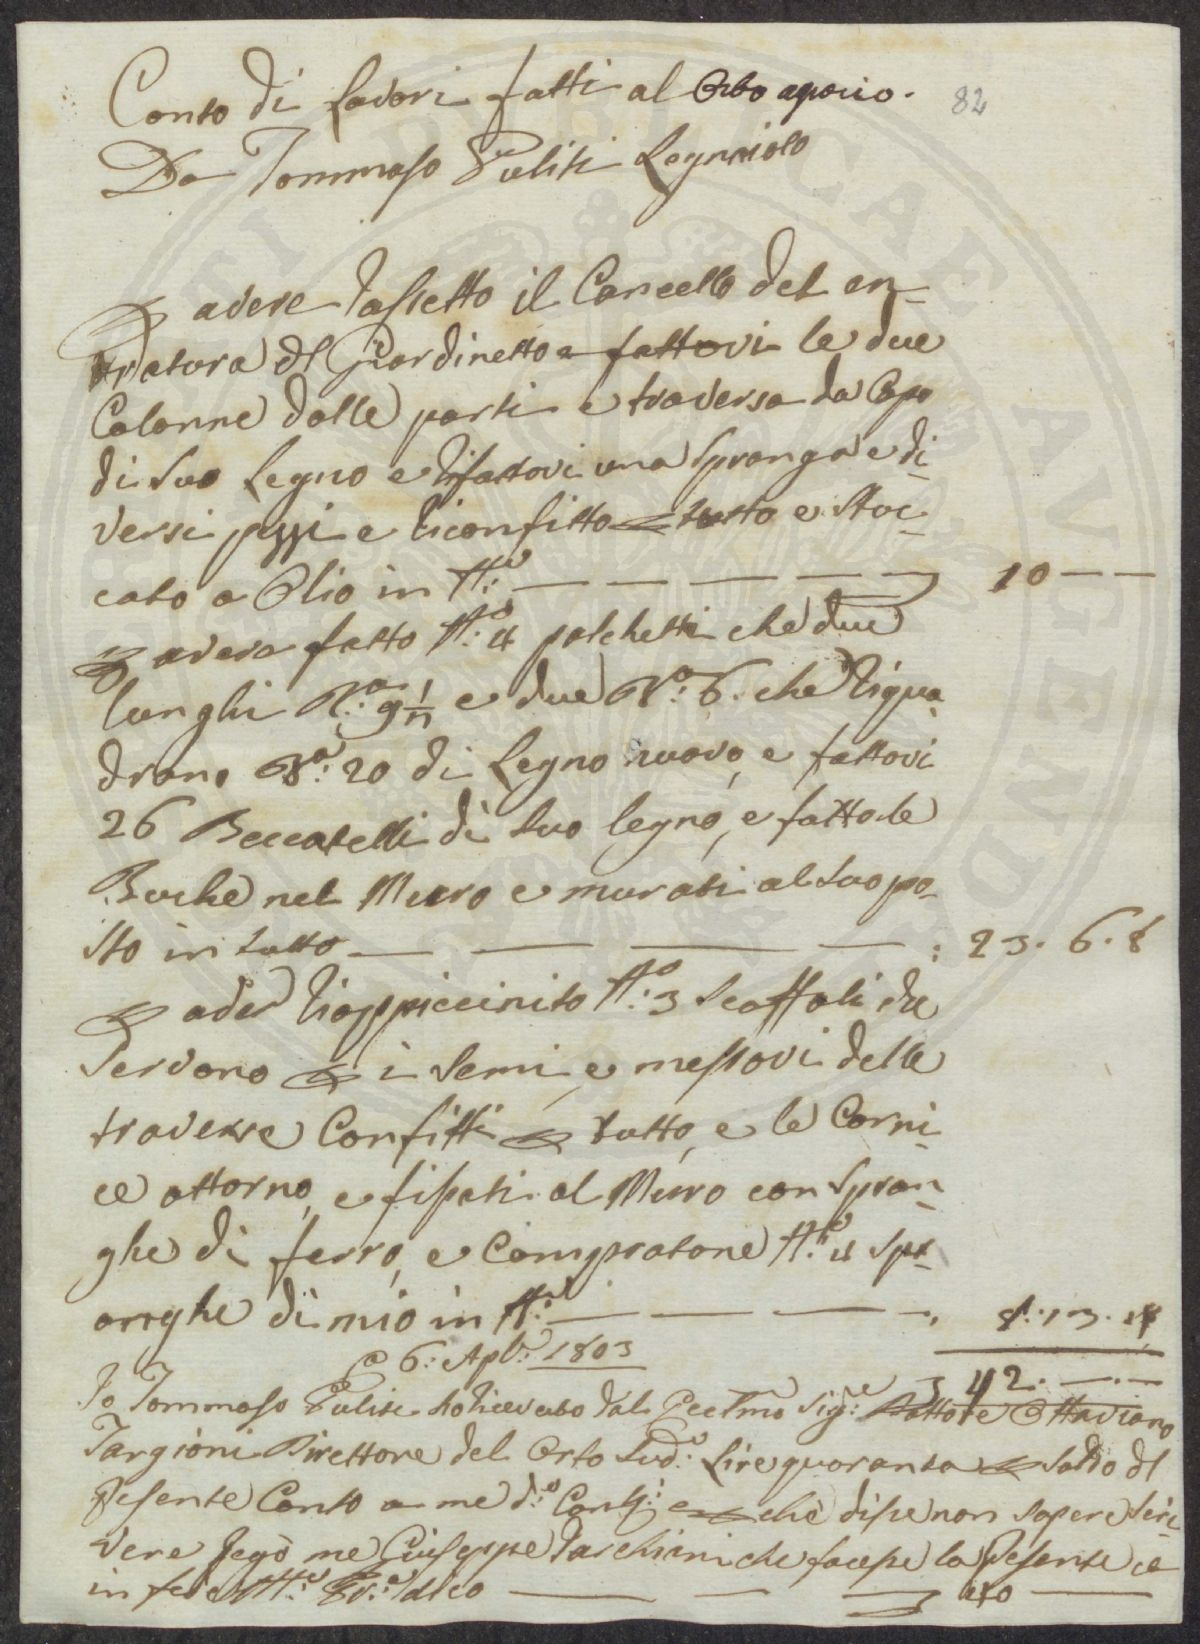 Conto di Lavori fatti al Orto agrario. 82
Da Tommaso Puliti Legniaiolo
P avere Rassetto il Cancello del en-
tratura del Giardinetto e fattovi le due
Colonne dalle parti e traversa da Capo
di Suo Legno e Rifattovi una Spranga e di
versi pezzi e Riconfitto P tutto e Stuc-
cato a Olio in tt.o — — — — — 10 — —
P avere fatto N.o 4 palchetti che due
lunghi B.a 9 1/n e due B.a 6. che Riqua
drano B.a 20 di Legno nuovo, e fattovi
26 Beccatelli di Suo legno, e fatto le
Buche nel Muro e murati al Suo po-
sto in tutto — — — — : 23. 6. 8
P aver Rioppiccinito N.o 3 Scaffali che
Servono P i Semi, e messovi delle
traverse Confitti P tutto, e le Corni-
ce attorno, e fissati al Muro con Spran-
ghe di ferro, e Compratone N.o 4 Spr
anghe di mio in tt.o — — — — . 8. 13. 4
42. — . —
E 6: Apl.e 1803
Io Tommaso Puliti ho Ricevuto dal Ecc.mo Sig.e Dottore Ottaviano
Targioni Direttore del Orto Sud.o Lire quaranta P Saldo del
Presente Conto a me d.o Cont.i e P che disse non Sapere Scri-
vere pregò me Giuseppe Tarchiani che facesse la Presente e
in fede M.o P.a dico — — — 40 —